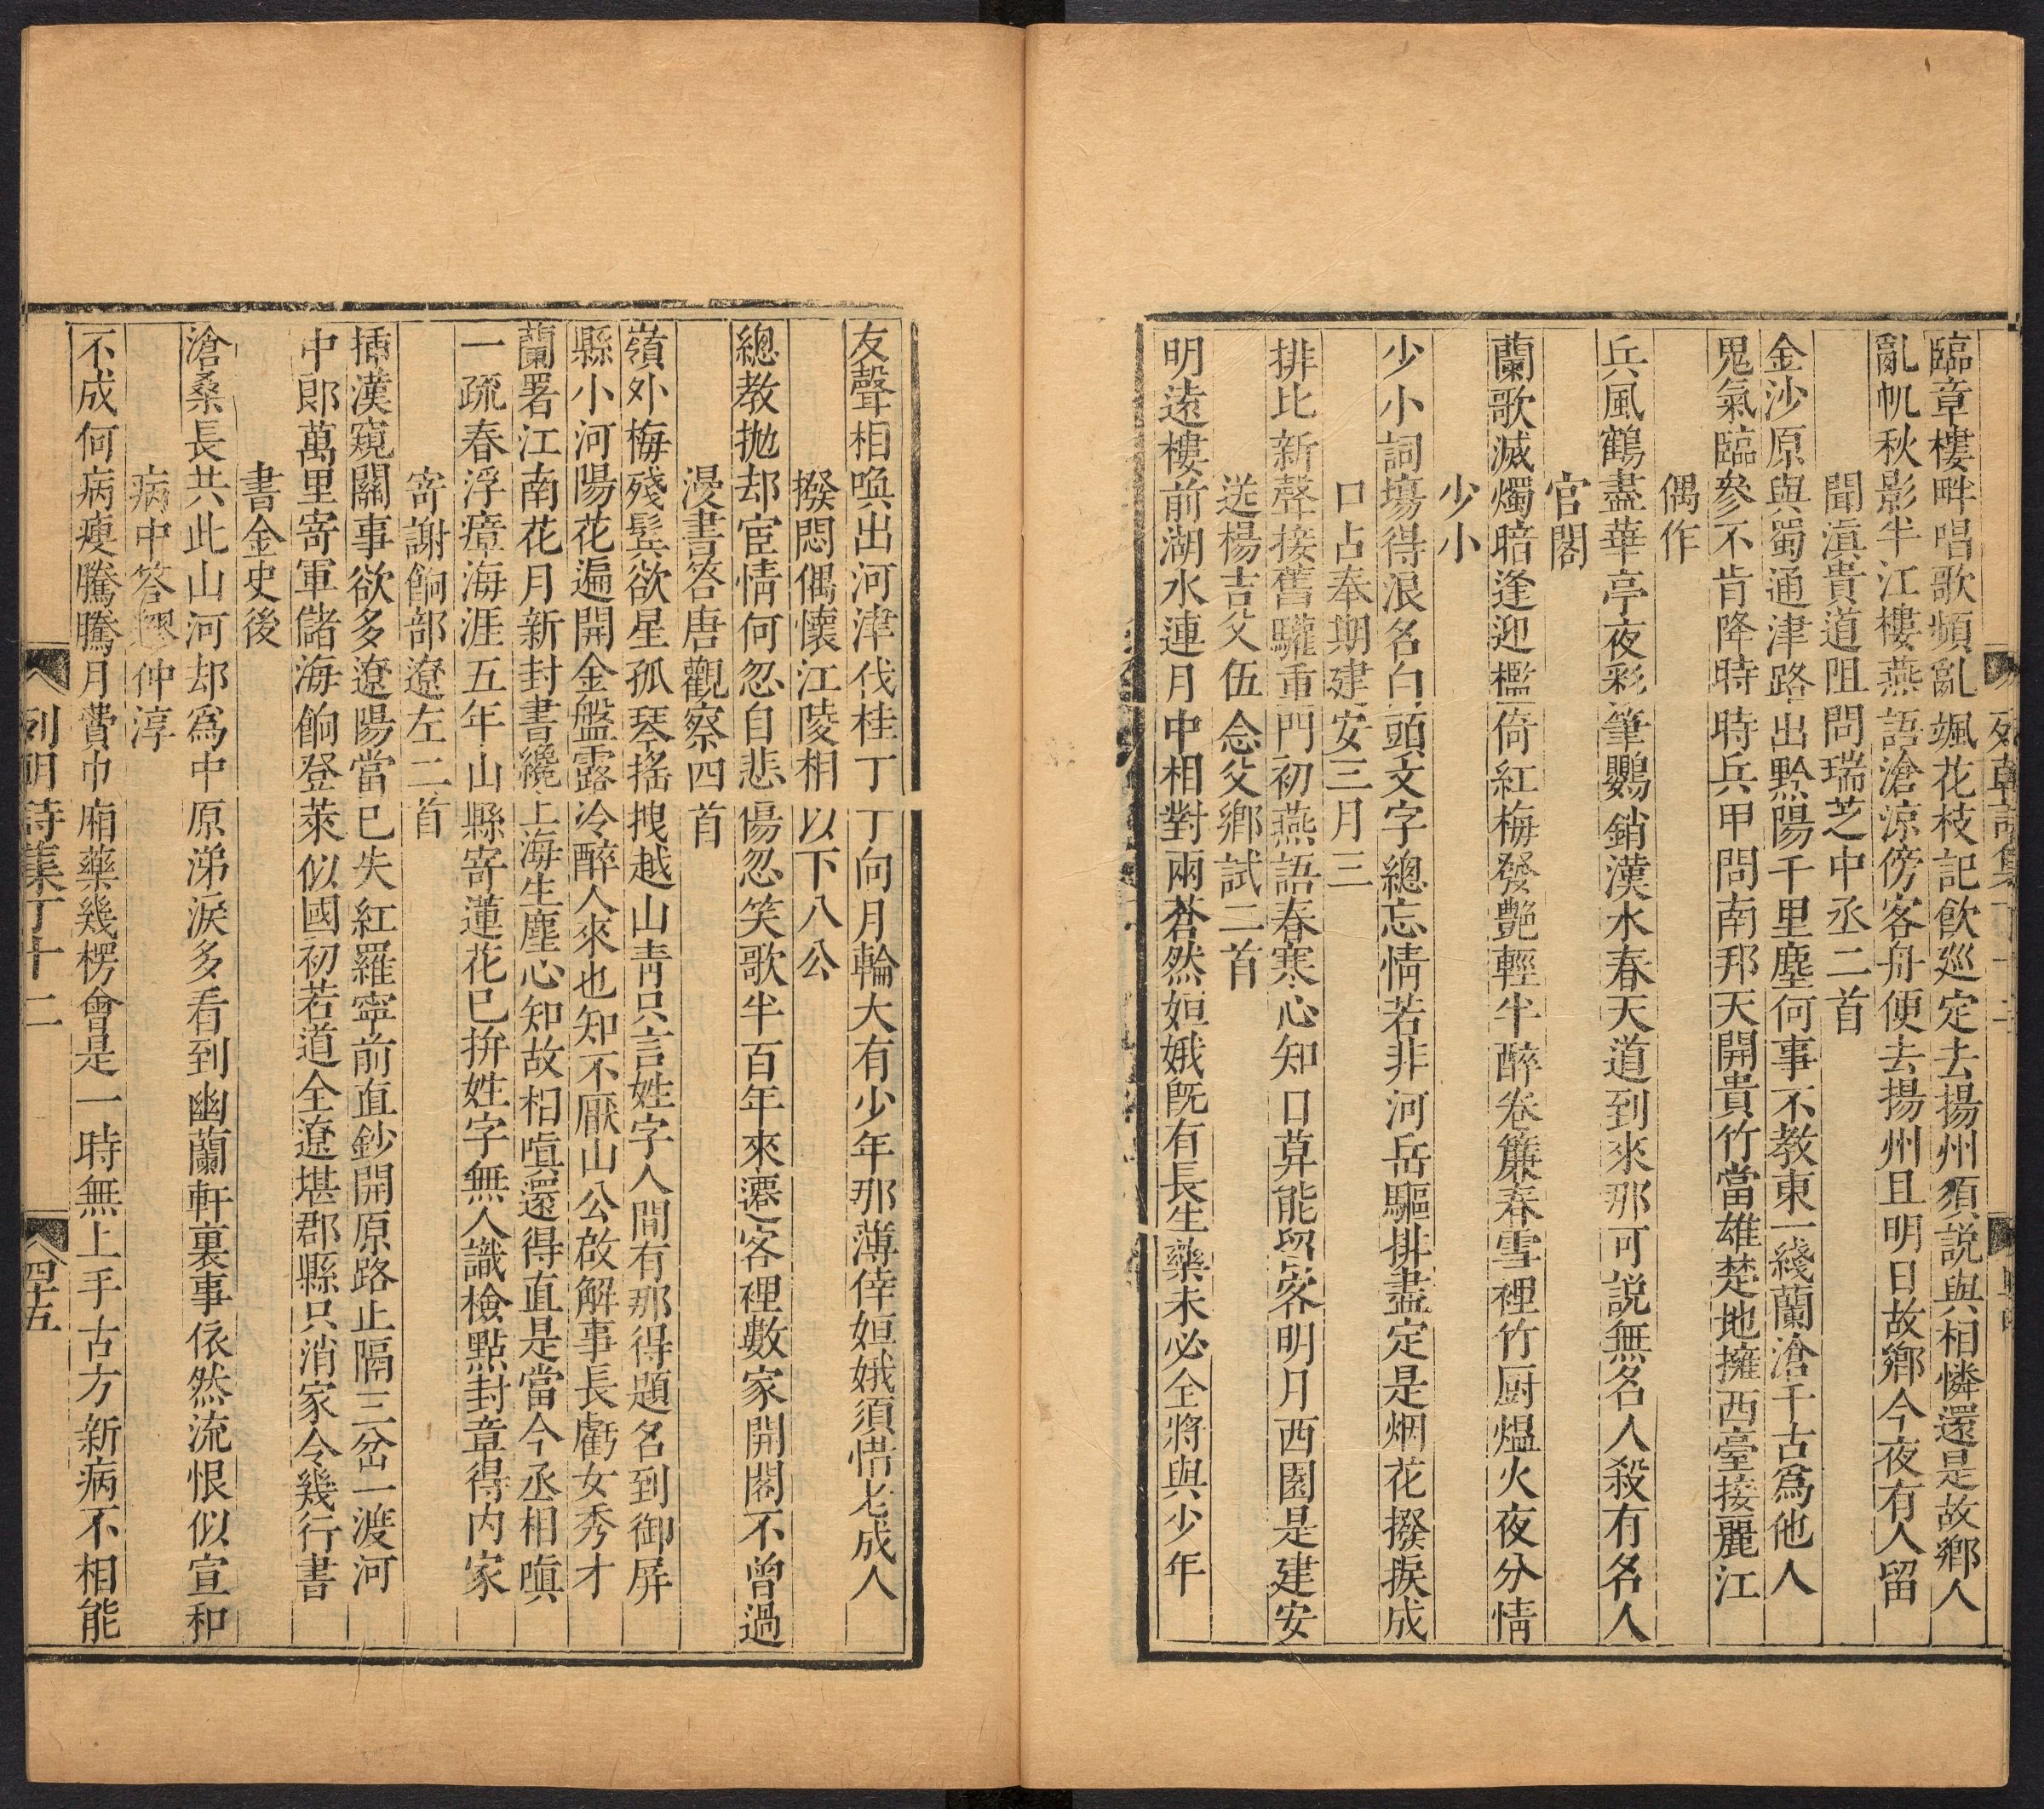 臨章樓畔唱歌頻亂颯花枝記飲巡定去揚州須説與相憐還是故鄉人
亂帆秋影半江樓燕語滄涼傍客舟便去揚州且明日故鄉今夜有人留
聞滇貴道阻問瑞芝中丞二首
金沙原與蜀通津路出黔陽千里塵何事不教東一綫蘭滄千古爲他人
鬼氣臨參不肯降時時兵甲問南邦天開貴竹當雄楚地擁西臺接麗江
偶作
兵風鶴盡華亭夜彩筆鸚銷漢水春天道到來那可説無名人殺有名人
官閣
蘭歌滅燭暗逢迎檻倚紅梅發艶輕半醉卷簾春雪裡竹厨煴火夜分情
少小
少小詞塲得浪名白頭文字總忘情若非河岳驅排盡定是烟花撥捩成
口占奉期建安三月三
排比新聲接舊驩重門初燕語春寒心知口筭能留客明月西園是建安
送楊吉父伍念父鄉試二首
明遠樓前湖水連月中相對兩蒼然姮娥旣有長生藥未必全將與少年
友聲相喚出河津伐桂丁丁向月輪大有少年那薄倖姮娥須惜老成人
撥悶偶懷江陵相以下八公
總教抛却宦情何忽自悲傷忽笑歌半百年來遷客裡數家開閣不曾過
漫書答唐觀察四首
嶺外梅殘髩欲星孤琴摇拽越山青只言姓字人間有那得題名到御屏
縣小河陽花遍開金盤露冷醉人來也知不厭山公啟解事長虧女秀才
蘭署江南花月新封書纔上海生塵心知故相嗔還得直是當今丞相嗔
一疏春浮瘴海涯五年山縣寄蓮花已拚姓字無人識檢點封章得内家
寄謝餉部遼左二首
插漢窺關事欲多遼陽當已失紅羅寧前直鈔開原路止隔三岔一渡河
中郎萬里寄軍儲海餉登萊似國初若道全遼堪郡縣只消家令幾行書
書金史後
滄桑長共此山河却爲中原涕淚多看到幽蘭軒裏事依然流恨似宣和
病中答繆仲淳
不成何病瘦騰騰月費巾廂藥幾楞會是一時無上手古方新病不相能
列朝詩集丁十二
四十五